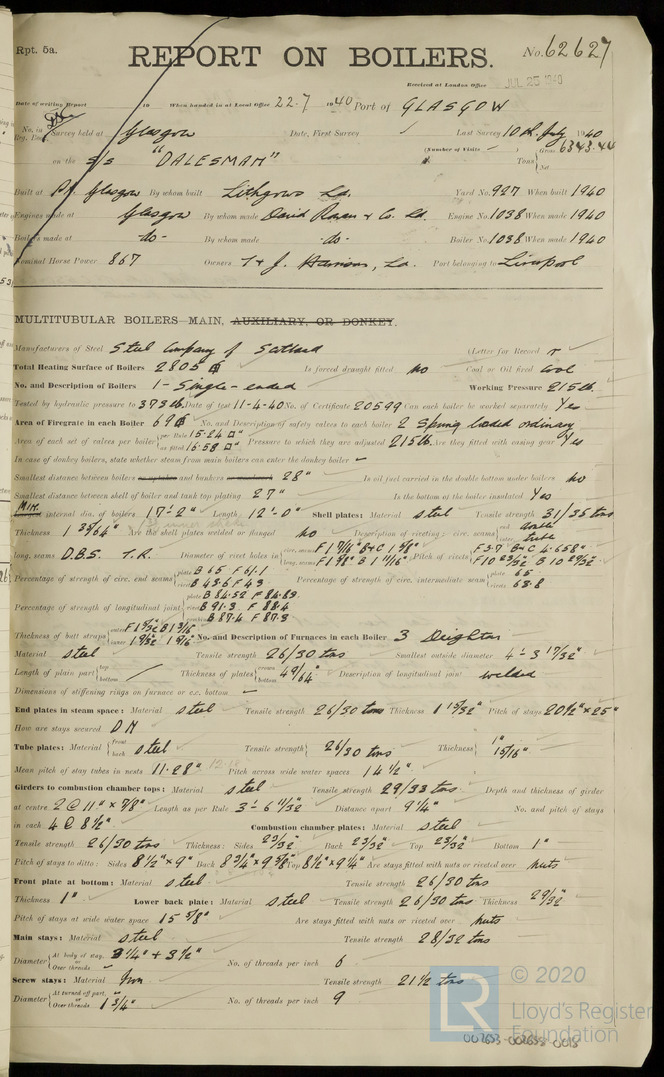 Rpt. 5a.
REPORT ON BOILERS.
No. 62627
Received at London Office JUL 25 1940
Date of writing Report 19 When handed in at Local Office 22-7 1940 Port of GLASGOW
No. in Reg. Book Survey held at Glasgow Date, First Survey Last Survey 10th July 1940
(Number of Visits
on the S/S "DALESMAN" Tons Gross 6343.44 Net
Built at Pt Glasgow By whom built Lithgows Ld. Yard No. 927 When built 1940
Engines made at Glasgow By whom made David Rowan & Co. Ld. Engine No. 1038 When made 1940
Boilers made at -do- By whom made -do- Boiler No. 1038 When made 1940
Nominal Horse Power 867 Owners T & J. Harrison, Ld. Port belonging to Liverpool
MULTITUBULAR BOILERS—MAIN, AUXILIARY, OR DONKEY.
Manufacturers of Steel Steel Company of Scotland (Letter for Record
Total Heating Surface of Boilers 2805 Is forced draught fitted No Coal or Oil fired Coal
No. and Description of Boilers 1 - Single-ended Working Pressure 215 lb.
Tested by hydraulic pressure to 373 lb. Date of test 11-4-40 No. of Certificate 20599 Can each boiler be worked separately Yes
Area of Firegrate in each Boiler 69 No. and Description of safety valves to each boiler 2 Spring loaded ordinary
Area of each set of valves per boiler per Rule 15.24 □" as fitted 16.58 □" Pressure to which they are adjusted 215 lb Are they fitted with easing gear Yes
In case of donkey boilers, state whether steam from main boilers can enter the donkey boiler
Smallest distance between boilers or uptakes and bunkers or woodwork 28" Is oil fuel carried in the double bottom under boilers No
Smallest distance between shell of boiler and tank top plating 27" Is the bottom of the boiler insulated Yes
Min. internal dia. of boilers 17'-2" Length 12'-0" Shell plates: Material steel Tensile strength 31/35 tons
Thickness 1 35/64" Are the shell plates welded or flanged No Description of riveting: circ. seams end double inter.
long. seams D.B.S. T.R. Diameter of rivet holes in circ. seams long. seams Pitch of rivets
Percentage of strength of circ. end seams plate B 65 F 61.1 rivet B 43.6 F 43 Percentage of strength of circ. intermediate seam plate 65 rivets 63.8
Percentage of strength of longitudinal joint plate B 84.52 F 84.83 rivet B 91.3 F 88.4 combined B 87.4 F 87.3
Thickness of butt straps outer inner No. and Description of Furnaces in each Boiler 3 Deighton
Material steel Tensile strength 26/30 tons Smallest outside diameter 4'-3 17/32"
Length of plain part top bottom Thickness of plates crown bottom 49/64" Description of longitudinal joint welded
Dimensions of stiffening rings on furnace or c.c. bottom
End plates in steam space: Material steel Tensile strength 26/30 tons Thickness 1 15/32" Pitch of stays 20 1/2" x 25"
How are stays secured D N
Tube plates: Material front back steel Tensile strength 26/30 tons Thickness 1" 15/16"
Mean pitch of stay tubes in nests 11.28" Pitch across wide water spaces 14 1/2"
Girders to combustion chamber tops: Material steel Tensile strength 29/33 tons Depth and thickness of girder
at centre 2 @ 11" x 7/8" Length as per Rule 3'-6 11/32" Distance apart 9 1/4" No. and pitch of stays
in each 4 @ 8 1/2" Combustion chamber plates: Material steel
Tensile strength 26/30 tons Thickness: Sides 23/32" Back 23/32" Top 23/32" Bottom 1"
Pitch of stays to ditto: Sides 8 1/2" x 9" Back 8 3/4" x 9 5/8" Top 8 1/2" x 9 1/4" Are stays fitted with nuts or riveted over nuts
Front plate at bottom: Material steel Tensile strength 26/30 tons
Thickness 1" Lower back plate: Material steel Tensile strength 26/30 tons Thickness 29/32"
Pitch of stays at wide water space 15 5/8" Are stays fitted with nuts or riveted over nuts
Main stays: Material steel Tensile strength 28/32 tons
Diameter At body of stay, or Over threads 3 1/4" + 3 1/2" No. of threads per inch 6
Screw stays: Material Iron Tensile strength 21 1/2 tons
Diameter At turned off part, or Over threads 1 3/4" No. of threads per inch 9
© 2020
LR
Lloyd's Register
Foundation
002653-002658-0018